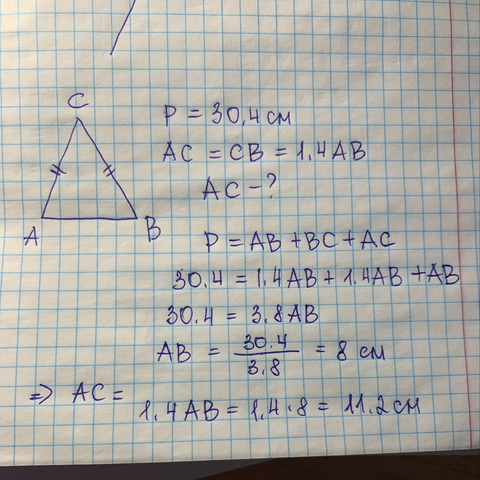 C
P = 30,4 см
AC = CB = 1,4 AB
AC - ?
A
B
P = AB + BC + AC
30.4 = 1.4AB + 1.4AB + AB
30.4 = 3.8AB
AB = 30.4 / 3.8 = 8 см
=> AC =
1.4AB = 1.4 · 8 = 11.2 см